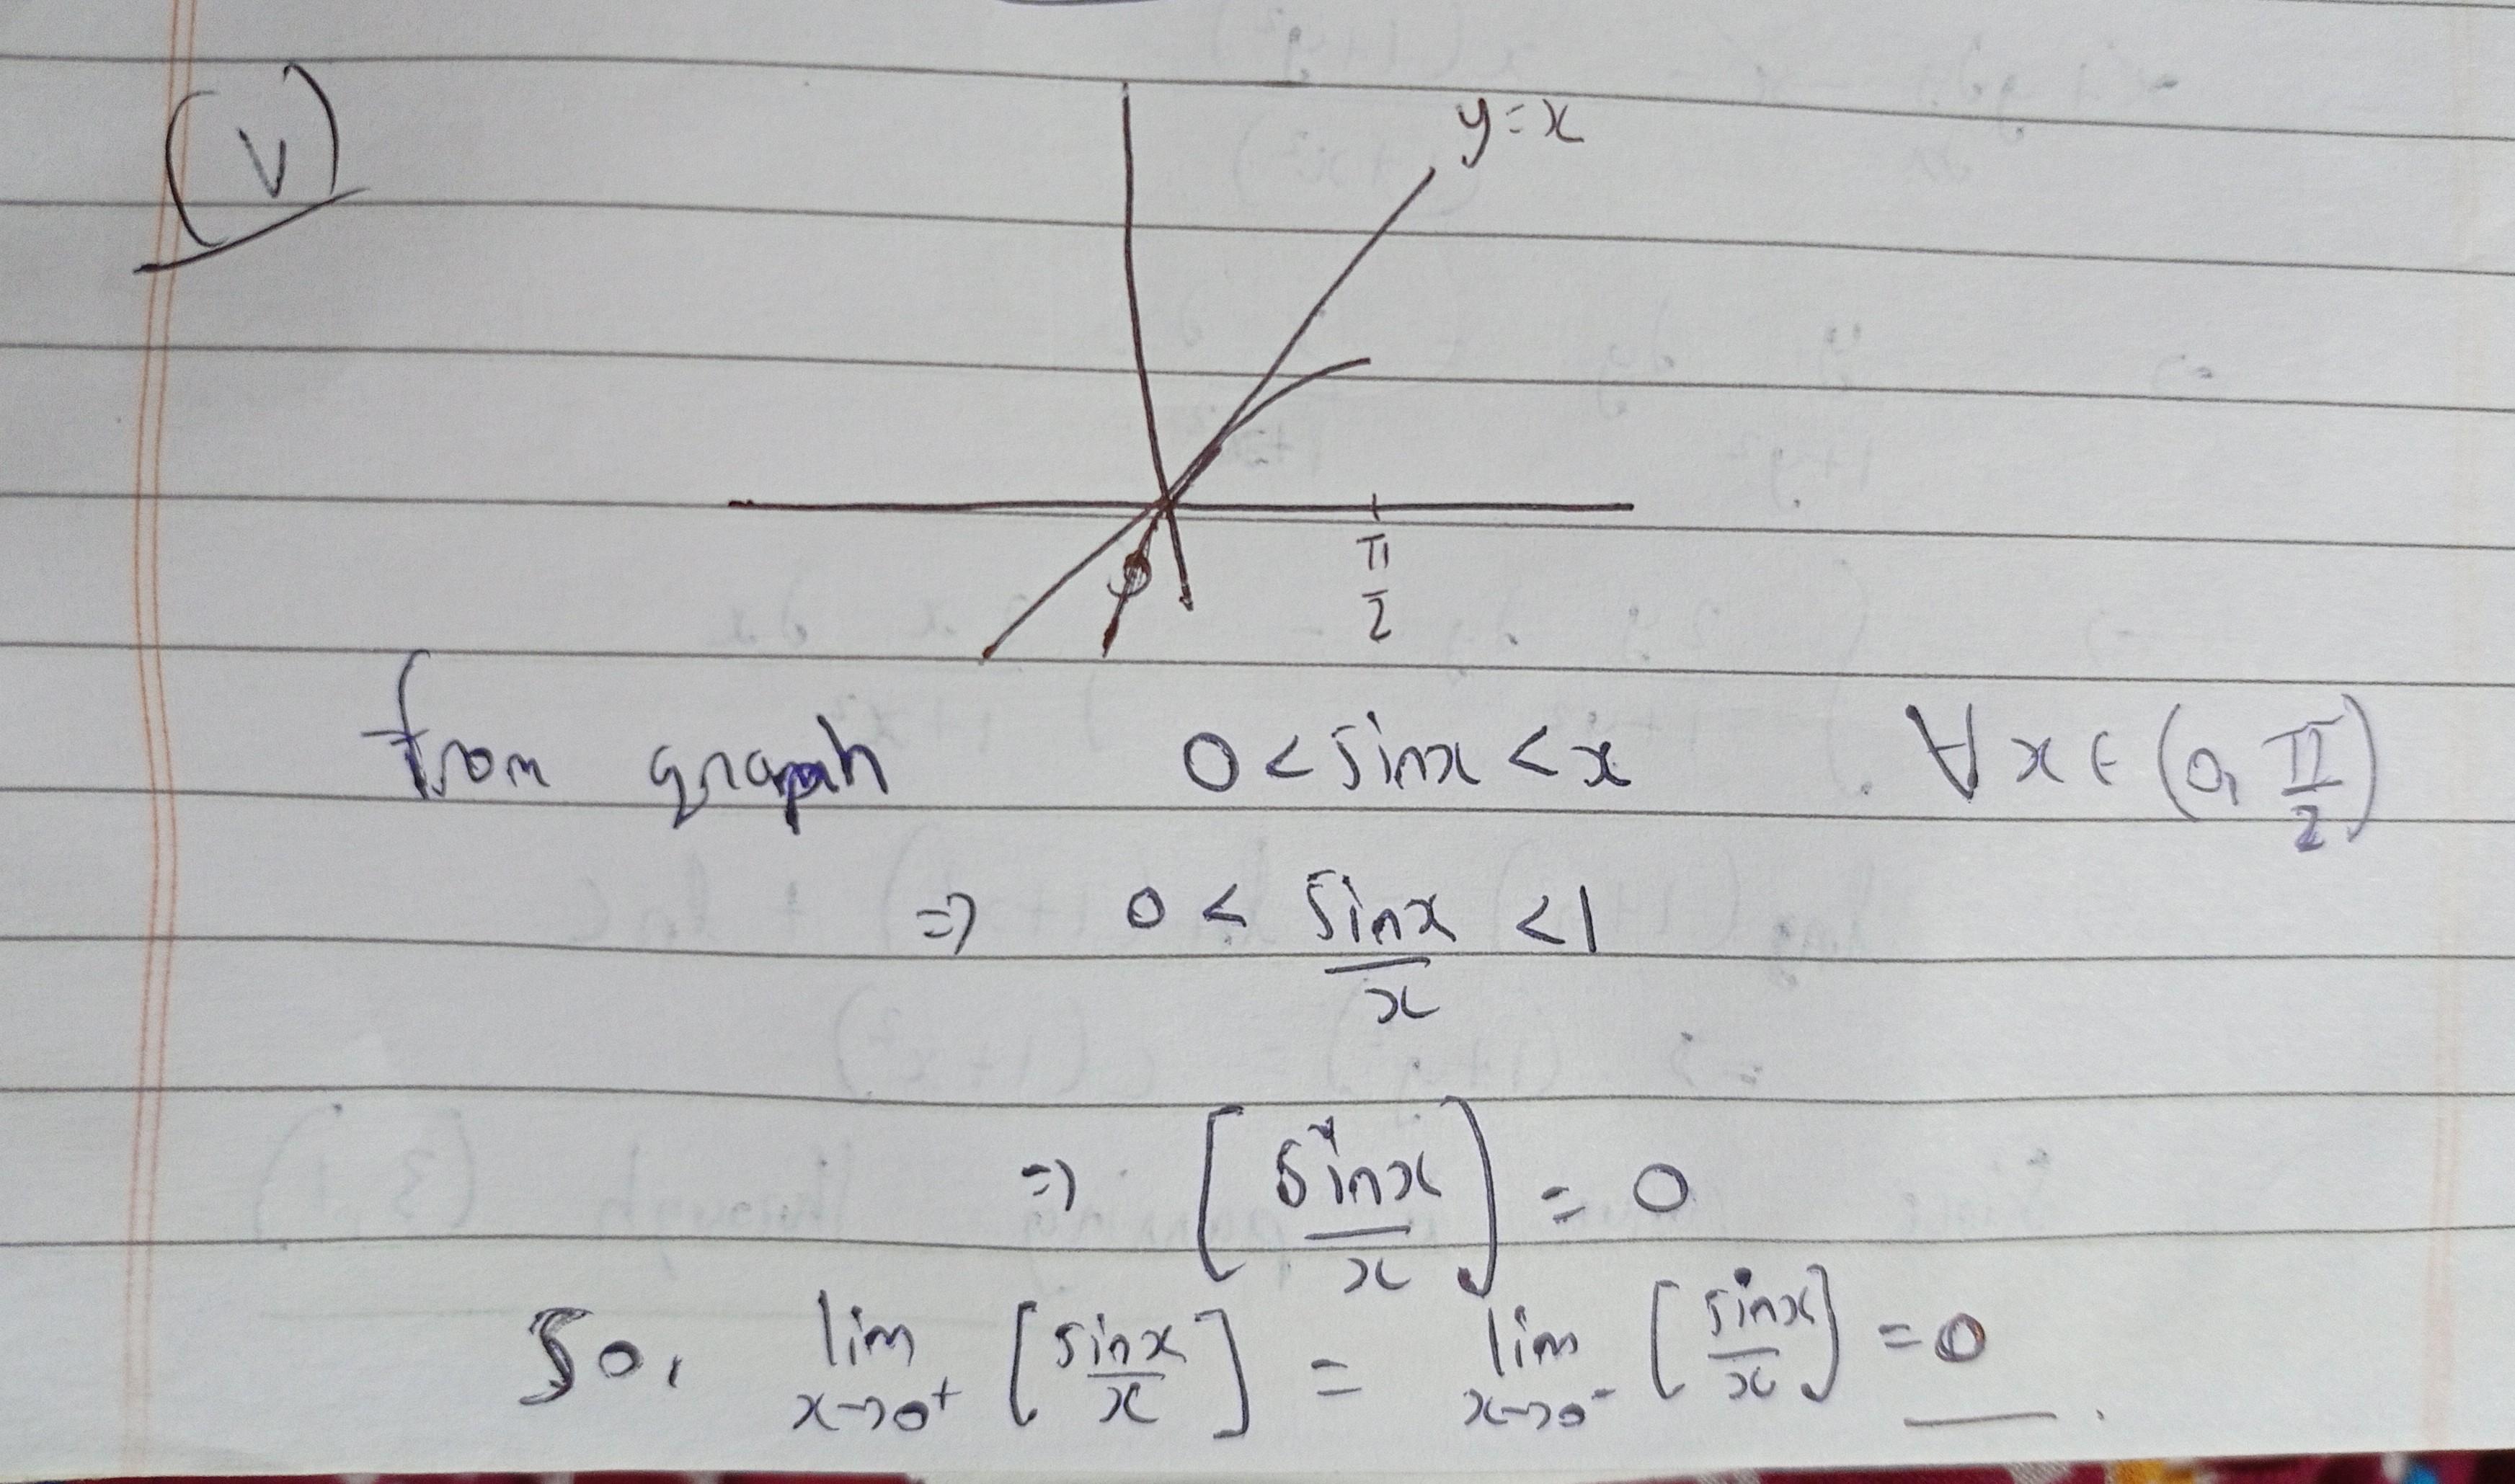 (V)
y=x
π/2
from graph 0 < sinx < x ∀ x ∈ (0, π/2)
⇒ 0 < sinx/x < 1
⇒ [sinx/x] = 0
So, lim x→0⁺ [sinx/x] = lim x→0⁻ [sinx/x] = 0.